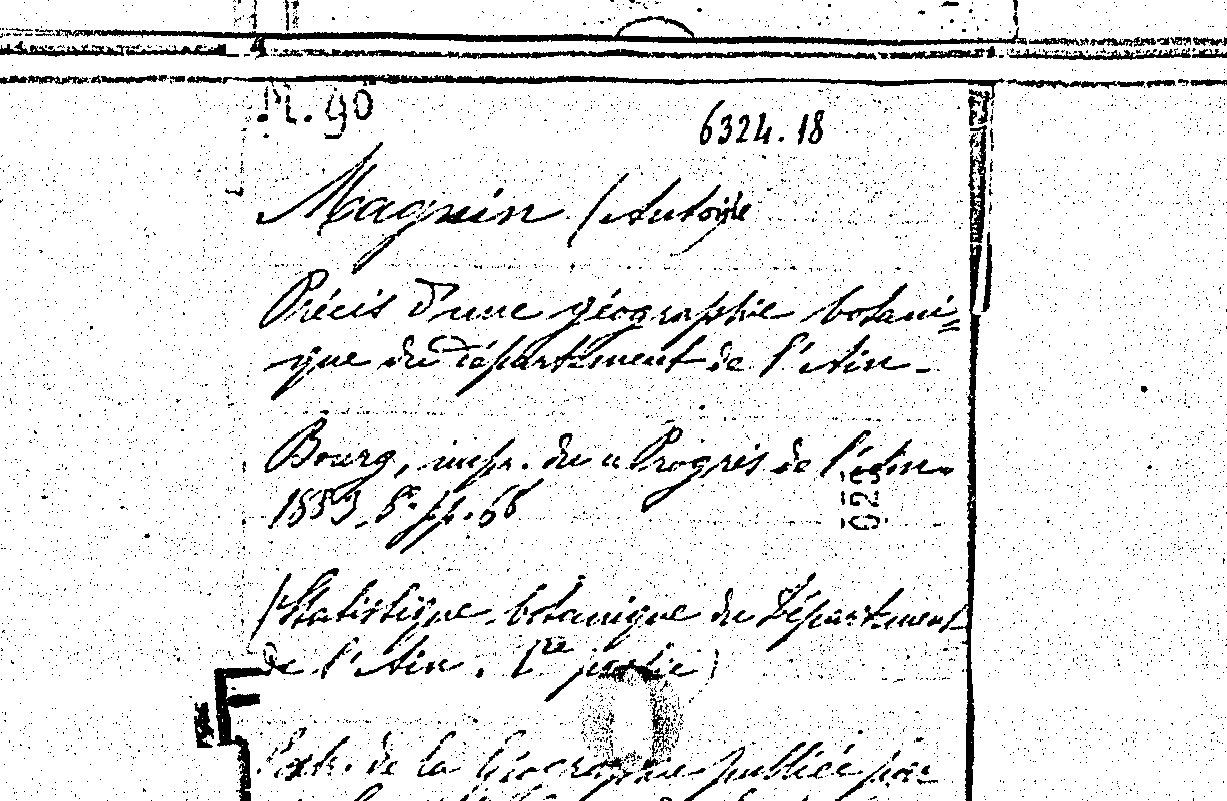 M. 90
6324.18
Magnin (Antoine
Précis d'une géographie botani=
que du département de l'Ain.
Bourg, impr. du "Progrès de l'Ain"
1883. 8°. pp. 66
023
(Statistique botanique du Département
de l'Ain. 1re partie)
Extr. de la Géographie publiée par